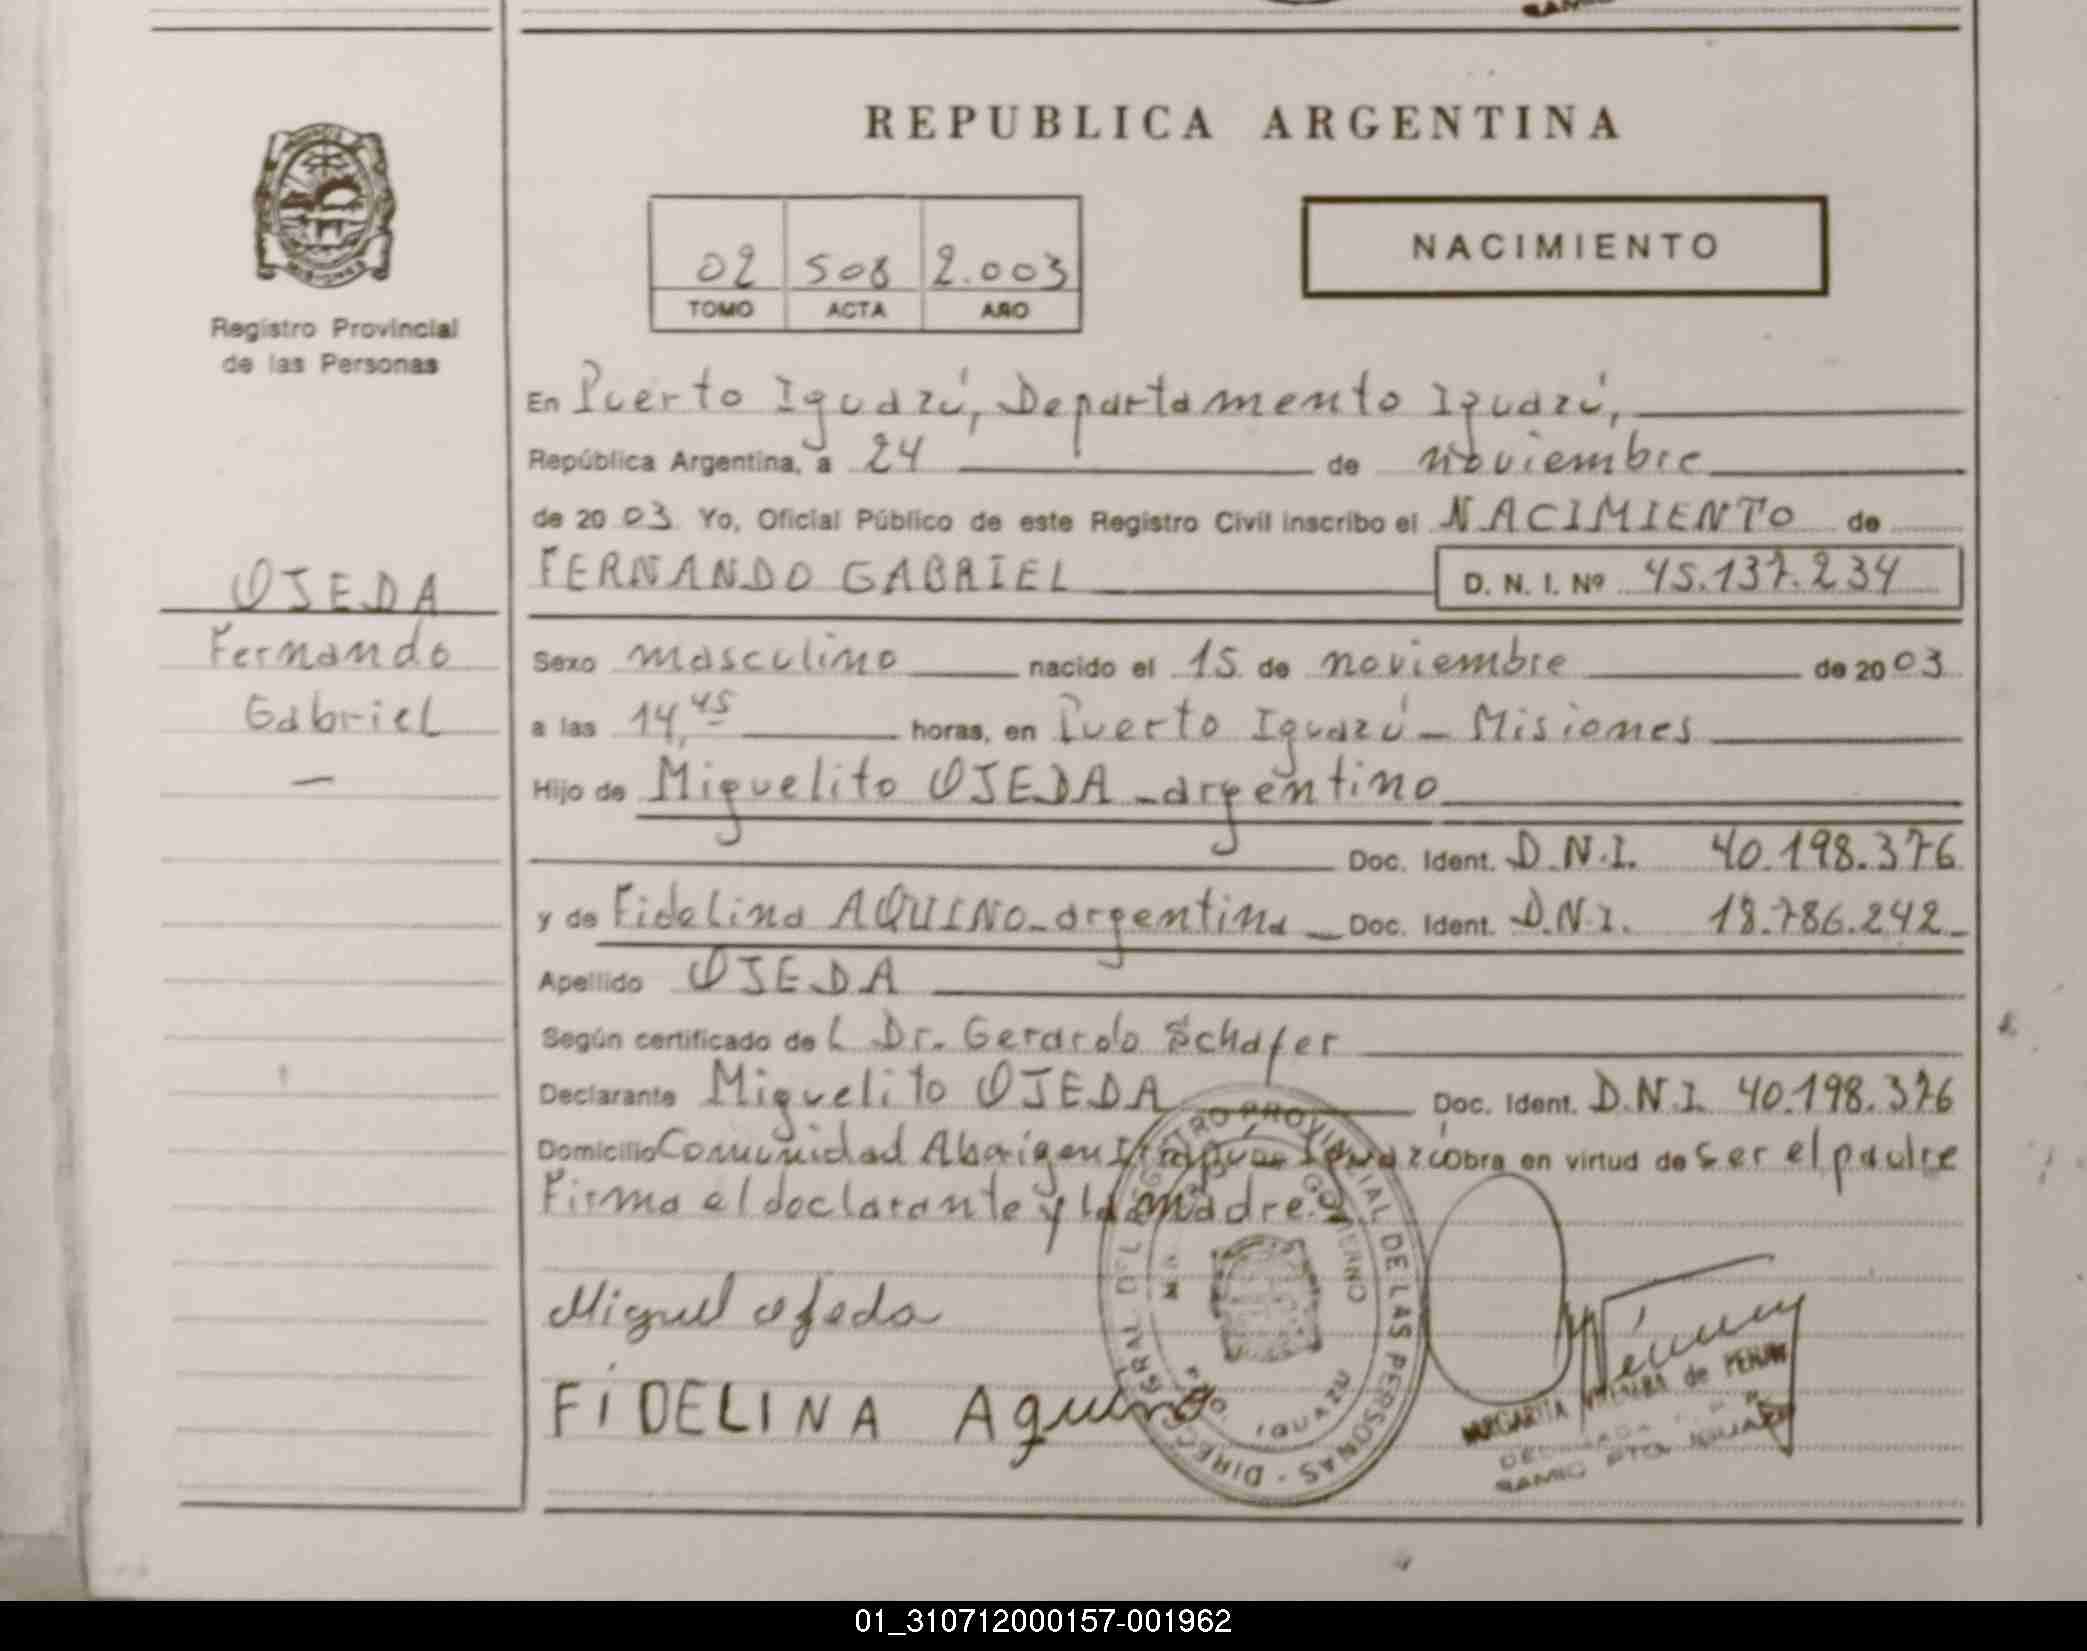 REPUBLICA ARGENTINA
Registro Provincial
de las Personas
02 508 2.003
TOMO ACTA AÑO
NACIMIENTO
En Puerto Iguazú, Departamento Iguazú,
República Argentina, a 24 de noviembre
de 2003 Yo, Oficial Público de este Registro Civil inscribo el NACIMIENTO de
FERNANDO GABRIEL D. N. I. Nº 45.137.234
OJEDA
Fernando
Gabriel
Sexo masculino nacido el 15 de noviembre de 2003
a las 14,45 horas, en Puerto Iguazú - Misiones
Hijo de Miguelito OJEDA - argentino
Doc. Ident. D.N.I. 40.198.376
y de Fidelina AQUINO - argentina Doc. Ident. D.N.I. 18.786.242
Apellido OJEDA
Según certificado del Dr. Gerardo Schafer
Declarante Miguelito OJEDA Doc. Ident. D.N.I. 40.198.376
Domicilio Comunidad Aborigen Iguazú obra en virtud de ser el padre
Firma el declarante y la madre.
Miguel Ojeda
FIDELINA Aquino
DIREC. GRAL. DEL REGISTRO PROVINCIAL DE LAS PERSONAS
GOBIERNO
IGUAZU
MARGARITA de
PTO. IGUAZU
01_310712000157-001962